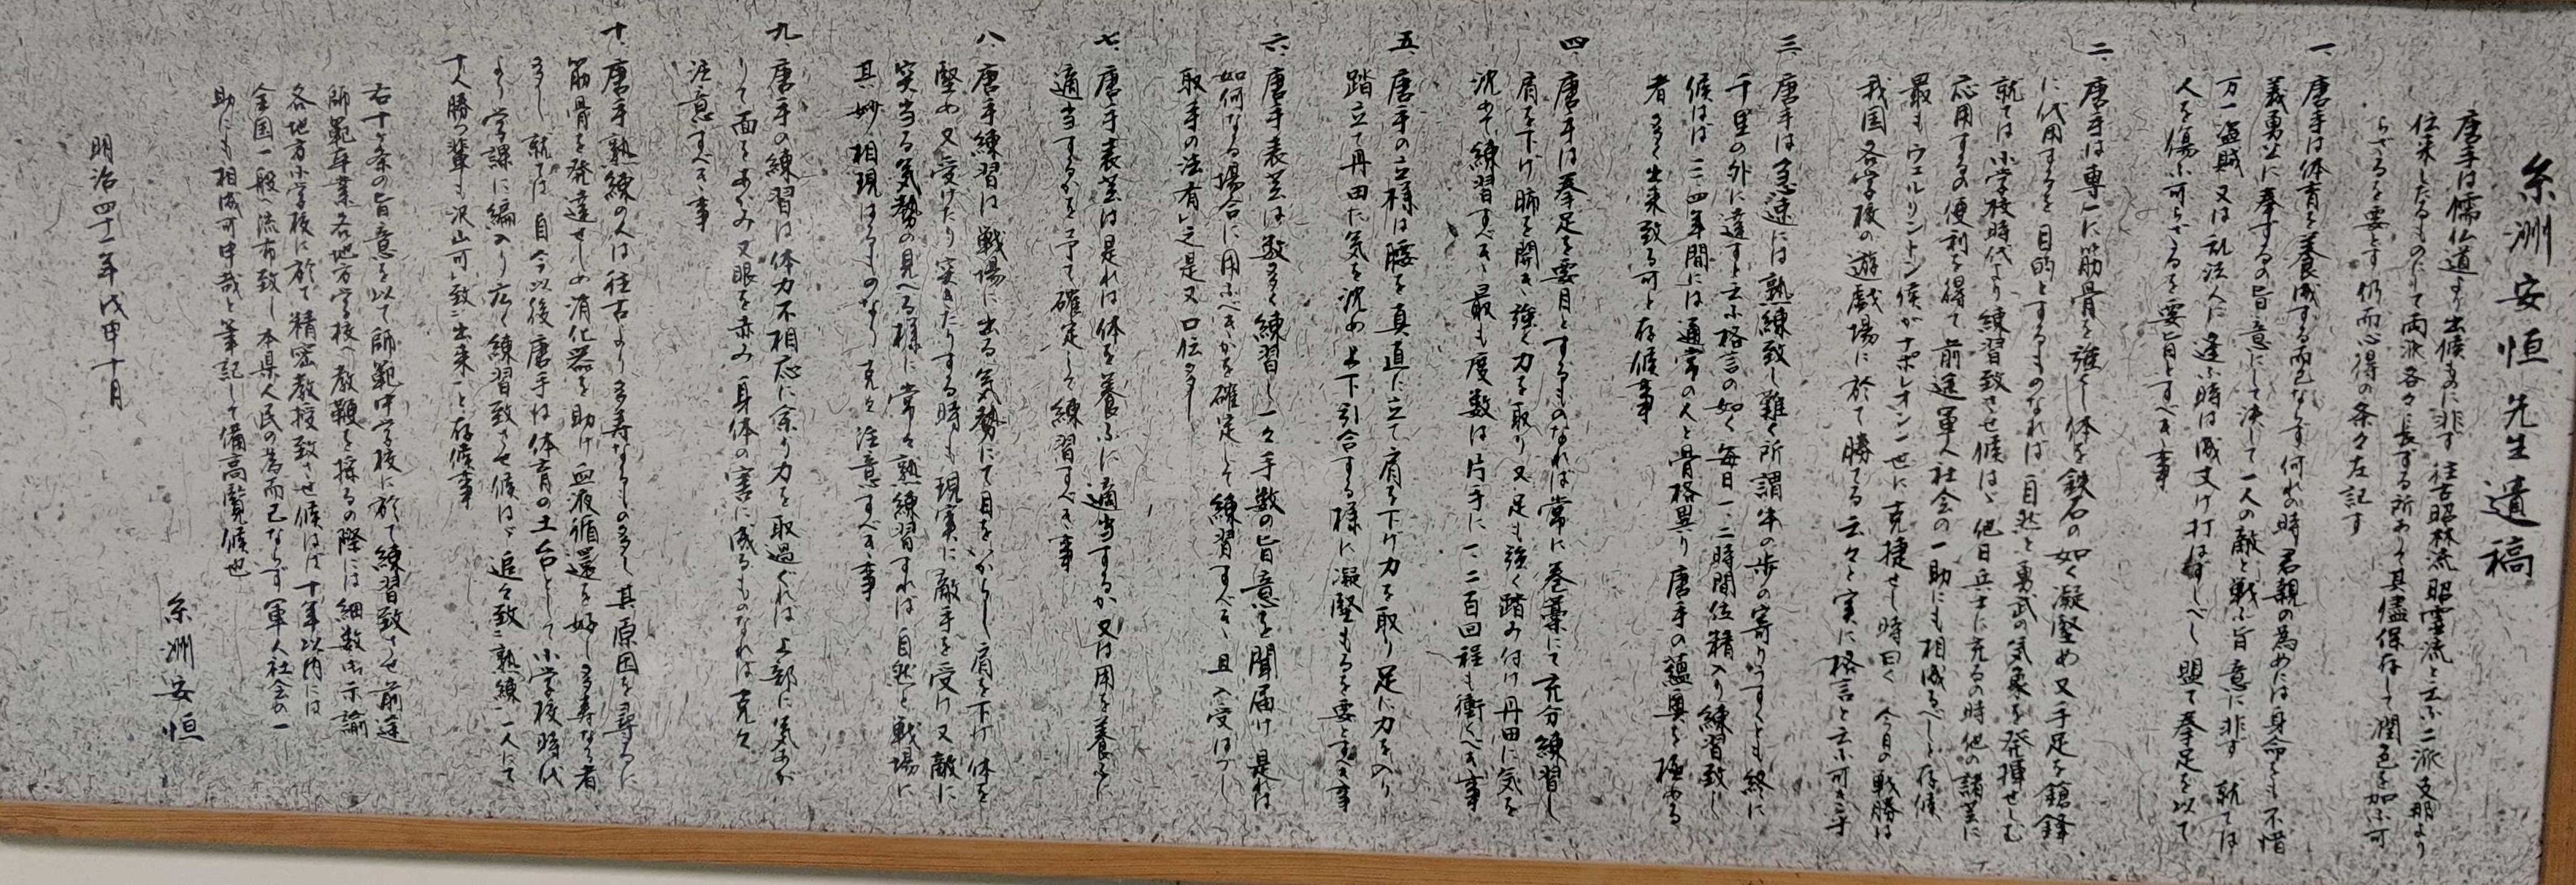 糸洲安恒先生遺稿
唐手は儒仏道より出候ものに非ず往古昭林流昭霊流と云ふ二派支那より
伝来したるものにして両派各々長ずる所ありて其儘保存して潤色を加ふ可
らざるを要とす仍而心得の条々左記す
一、唐手は体育を養成する而已ならず何れの時君親の為めには身命をも不惜
義勇公に奉ずるの旨意にして決して一人の敵と戦ふ旨意に非ず就ては
万一盗賊又は乱法人に逢ふ時は成丈け打はずしべし盟て拳足を以て
人を傷ふ可らざるを要旨とすべき事
二、唐手は専一に筋骨を強くし体を鉄石の如く凝堅め又手足を鎗鋒
に代用するを目的とするものなれば自然と勇武の気象を発揮せしむ
就ては小学校時代より練習致させ候はゞ他日兵士に充るの時他の諸芸に
応用するの便利を得て前途軍人社会の一助にも相成るべしと存候
最もウェルリントン候がナポレオン一世に克捷せし時曰く今日の戦勝は
我国各学校の遊戯場に於て勝てる云々と実に格言と云ふ可き乎
三、唐手は急速には熟練致し難く所謂牛の歩の寄りうすくとも終に
千里の外に達すと云ふ格言の如く毎日一二時間位精入り練習致し
候はば三四年間には通常の人と骨格異り唐手の蘊奥を極める
者多く出来致る可と存候事
四、唐手は拳足を要目とするものなれば常に巻藁にて充分練習し
肩を下げ肺を開き強く力を取り又足も強く踏み付け丹田に気を
沈めて練習すべき最も度数は片手に一、二百回程も衝くべき事
五、唐手の立様は腰を真直に立て肩を下げ力を取り足に力を入り
踏立て丹田に気を沈め上下引合する様に凝堅もるを要とすべき事
六、唐手表芸は数多く練習し一々手数の旨意を聞届け是れは
如何なる場合に用ふべきかを確定して練習すべき且入受はづし
取手の法有之是又口伝多し
七、唐手表芸は是れは体を養ふに適当するか又は用を養ふに
適当するかを予て確定して練習すべき事
八、唐手練習は戦場に出る気勢にて目をいからし肩を下げ体を
堅め又受けたり突きたりする時も現実に敵手を受け又敵に
突当る気勢の見へる様に常々熟練習すれば自然と戦場に
其妙相現はるものなり克々注意すべき事
九、唐手の練習は体力不相応に余り力を取過ぐれば上部に気あが
りて面をあかみ又眼を赤み身体の害に成るものなれば克々
注意すべき事
十、唐手熟練の人は往古より多寿なるもの多し其原因を尋るに
筋骨を発達せしめ消化器を助け血液循還を好し多寿なる者
多し就ては自今以後唐手は体育の土台として小学校時代
より学課に編入り広く練習致させ候はゞ追々致熟練一人にて
十人勝の輩も沢山可致出来と存候事
右十ヶ条の旨意を以て師範中学校に於て練習致させ前途
師範卒業各地方学校へ教鞭を採るの際には細敷御示諭
各地方小学校に於て精密教授致させ候はば十年以内には
全国一般へ流布致し本県人民の為而已ならず軍人社会の一
助にも相成可申哉と筆記して備高覧候也
明治四十一年戊申十月
糸洲安恒